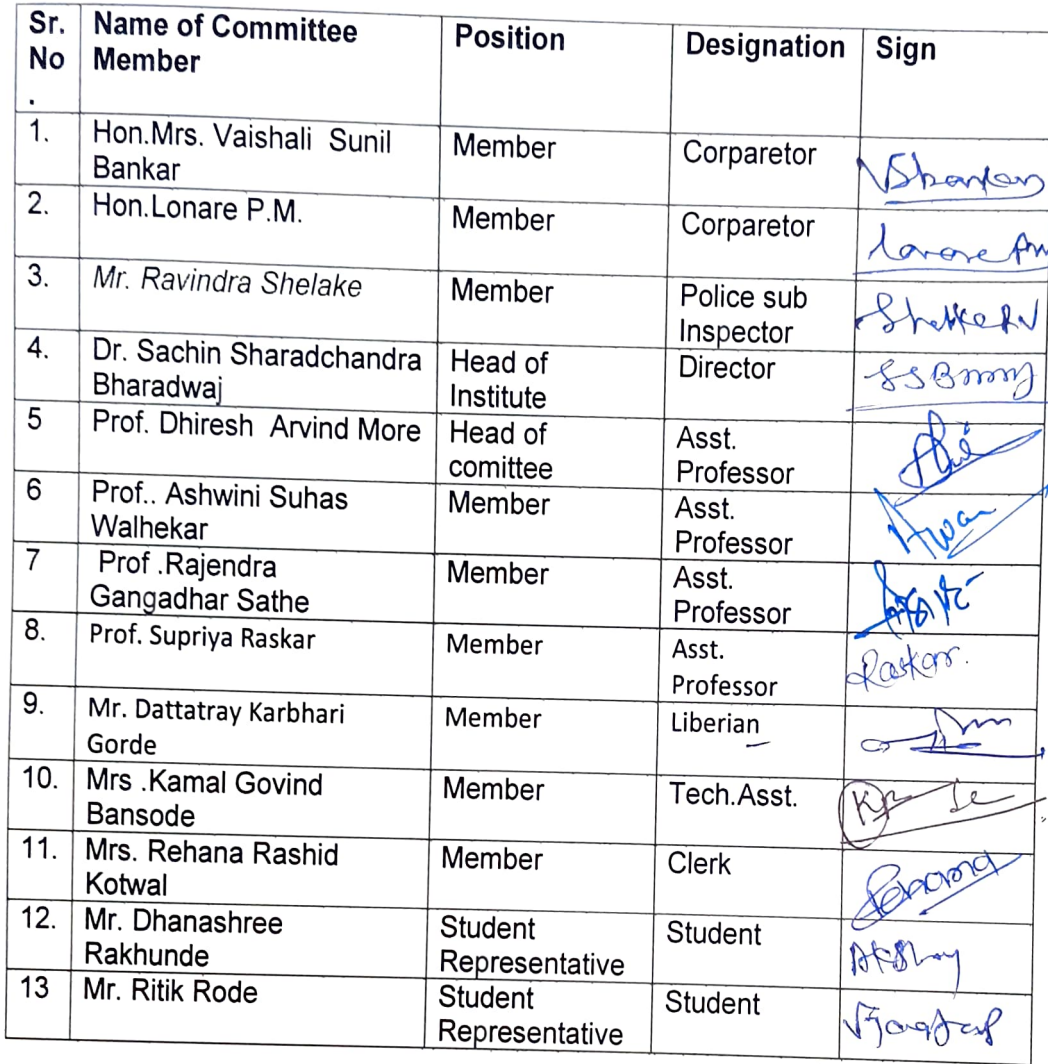 Sr. No . Name of Committee Member Position Designation Sign
1. Hon.Mrs. Vaishali Sunil Bankar Member Corparetor VSBankar
2. Hon.Lonare P.M. Member Corparetor Lonare PM
3. Mr. Ravindra Shelake Member Police sub Inspector Shelke RV
4. Dr. Sachin Sharadchandra Bharadwaj Head of Institute Director
5 Prof. Dhiresh Arvind More Head of comittee Asst. Professor
6 Prof.. Ashwini Suhas Walhekar Member Asst. Professor
7 Prof .Rajendra Gangadhar Sathe Member Asst. Professor
8. Prof. Supriya Raskar Member Asst. Professor Raskar.
9. Mr. Dattatray Karbhari Gorde Member Liberian
10. Mrs .Kamal Govind Bansode Member Tech.Asst.
11. Mrs. Rehana Rashid Kotwal Member Clerk
12. Mr. Dhanashree Rakhunde Student Representative Student Akshay
13 Mr. Ritik Rode Student Representative Student